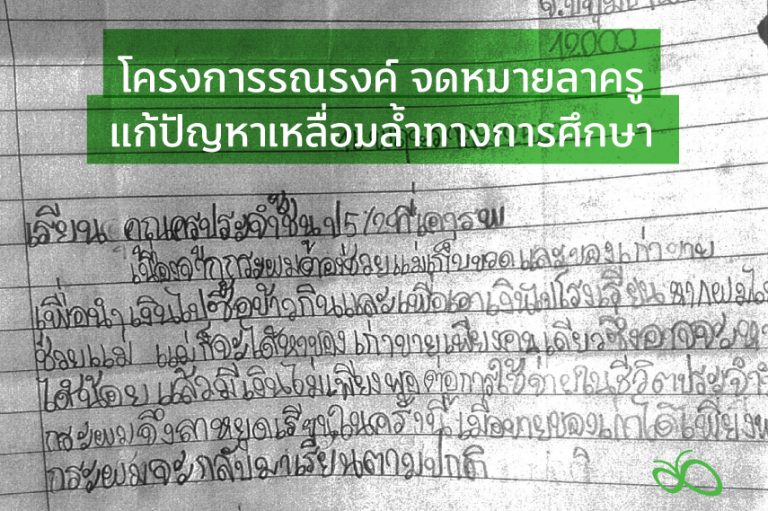 12000
โครงการรณรงค์ จดหมายลาครู
แก้ปัญหาเหลื่อมล้ำทางการศึกษา
เรียน คุณครูประจำชั้น ป5/2ที่เคารพ
เนื่องจากกระผมต้องช่วยแม่เก็บขวดและของเก่าขาย
เพื่อนำเงินไปซื้อข้าวกินและเพื่อเอาเงินไปโรงเรียน หากผมไม่
ช่วยแม่ แม่ก็จะได้หาของเก่าขายเพียงคนเดียวซึ่งอาจจะ
ได้น้อย แล้วมีเงินไม่เพียงพอต่อการใช้จ่ายในชีวิตประจำ
กระผมจึงลาหยุดเรียนในครั้งนี้ เมื่อขายของเก่าได้เพียงพ
กระผมจะกลับมาเรียนตามปกติ